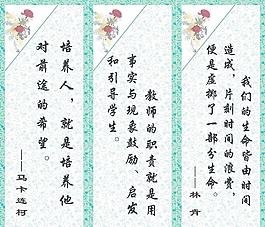 培养人，就是培养他
对前途的希望。
——马卡连柯
教师的职责就是用
事实与现象鼓励、启发
和引导学生。
我们的生命皆由时间
造成，片刻时间的浪费，
便是虚掷了一部分生命。
——林肯